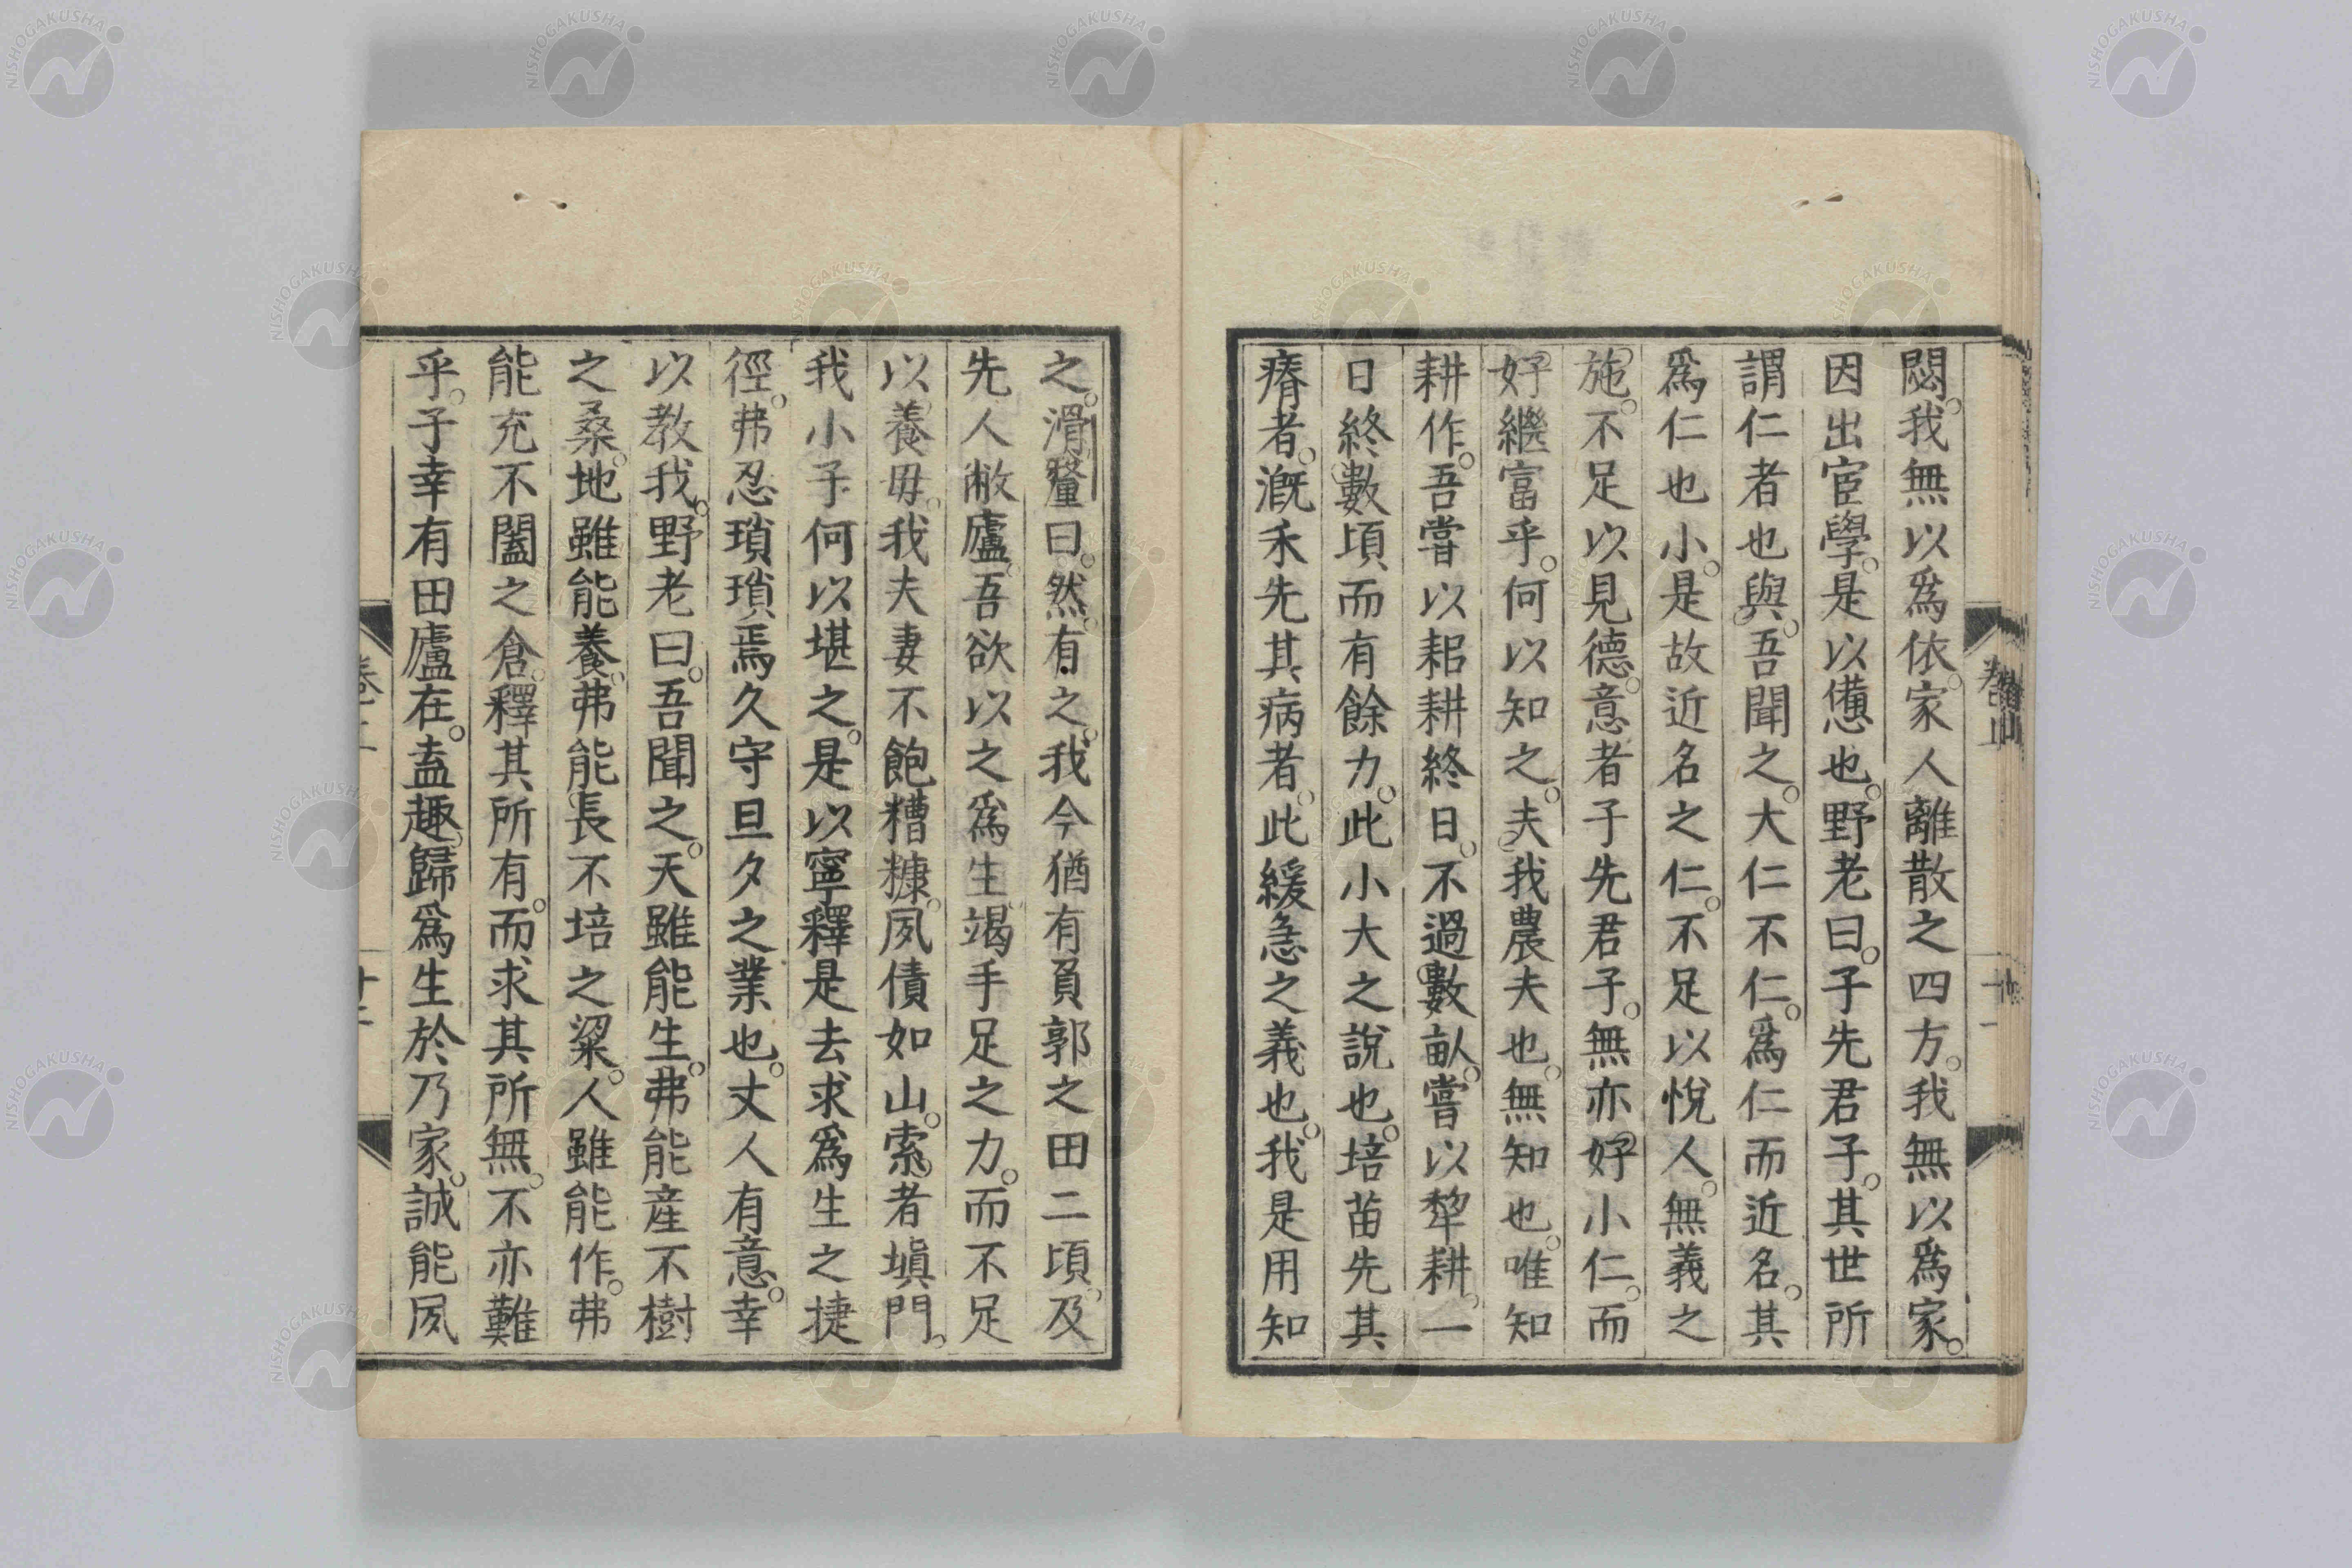 悶。我無以爲依。家人離散之四方。我無以爲家。
因出宦學。是以憊也。野老曰。子先君子。其世所
謂仁者也與。吾聞之。大仁不仁。爲仁而近名。其
爲仁也小。是故近名之仁。不足以悅人。無義之
施。不足以見德。意者子先君子。無亦好小仁。而
好繼富乎。何以知之。夫我農夫也。無知也。唯知
耕作。吾嘗以耜耕終日。不過數畝。嘗以犂耕。一
日終數頃而有餘力。此小大之說也。培苗先其
瘠者。漑禾先其病者。此緩急之義也。我是用知
之。滑釐曰。然。有之。我今猶有負郭之田二頃。及
先人敝廬。吾欲以之爲生。竭手足之力。而不足
以養毋。我夫妻不飽糟糠。夙債如山。索者塡門。
我小子何以堪之。是以寧釋是去求爲生之捷
徑。弗忍瑣瑣焉久守旦夕之業也。丈人有意。幸
以教我。野老曰。吾聞之。天雖能生。弗能産不樹
之桑。地雖能養。弗能長不培之粱。人雖能作。弗
能充不闔之倉。釋其所有。而求其所無。不亦難
乎。子幸有田廬在。盍趣歸爲生於乃家。誠能夙
NISHOGAKUSHA